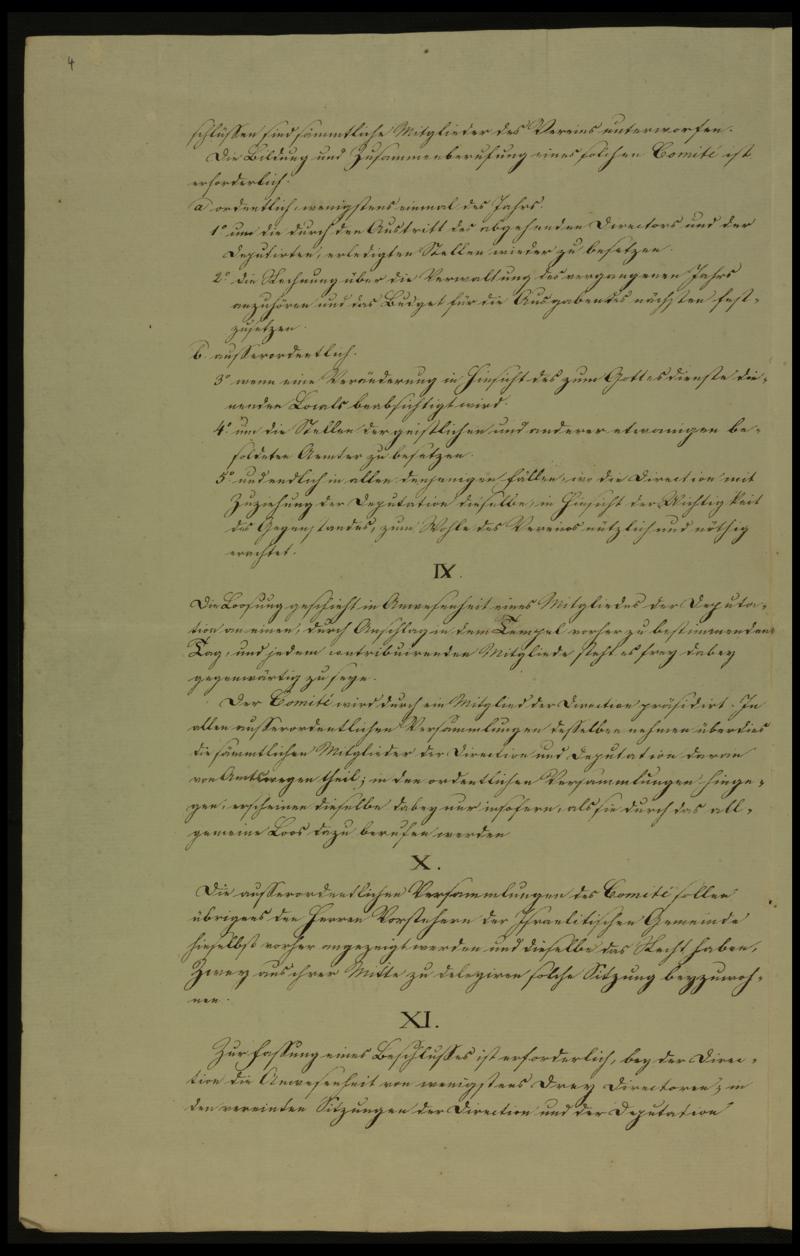 4
schlüssen sind sämmtliche Mitglieder des Vereins unterworfen.
Die Bildung und Zusammenberufung eines solchen Comité ist
erforderlich.
a ordentlich wenigstens einmal des Jahrs.
1° um die durch den Austritt des abgehenden Directors und der
Deputirten, erledigten Stellen wieder zu besetzen.
2° die Rechnung über die Verwaltung des vergangenen Jahrs
anzuhören und das Budget für die Ausgaben des nächsten fest-
zusetzen.
b. ausserordentlich.
3° wenn eine Veränderung in Hinsicht des zum Gottesdienste die-
nenden Locals beabsichtigt wird.
4° um die Stellen der geistlichen und anderer etwanigen be-
soldeten Aemter zu besetzen.
5° und endlich in allen denjenigen Fällen, wo die Direction mit
Zuziehung der Deputation dieselbe, in Hinsicht der Wichtigkeit
des Gegenstandes, zum Wohle des Vereins nützlich und nöthig
erachtet.
IX.
Die Loosung geschieht in Anwesenheit eines Mitgliedes der Deputa-
tion an einem, durch Anschlag in dem Tempel vorher zu bestimmenden
Tag, und jedem contribuirenden Mitgliede steht es frey dabey
gegenwärtig zu seyn.
Der Comité wird durch ein Mitglied der Direction präsidirt. In
allen ausserordentlichen Versammlungen desselben nehmen überdies
die sämmtlichen Mitglieder der Direction und Deputation daran
von Amtswegen theil; in den ordentlichen Versammlungen hinge-
gen, erscheinen dieselbe dabey nur insofern, als sie durch das all-
gemeine Loos dazu berufen werden
X.
Die ausserordentlichen Versammlungen des Comité sollen
übrigens den Herren Vorstehern der Israelitischen Gemeinde
hieselbst vorher angezeigt werden und dieselbe das Recht haben,
Zwey aus ihrer Mitte zu delegiren solche Sitzung beyzuwoh-
nen.
XI.
Zur Fassung eines Beschlusses ist erforderlich, bey der Direc-
tion die Anwesenheit von wenigstens drey Directoren; in
den vereinten Sitzungen der Direction und der Deputation